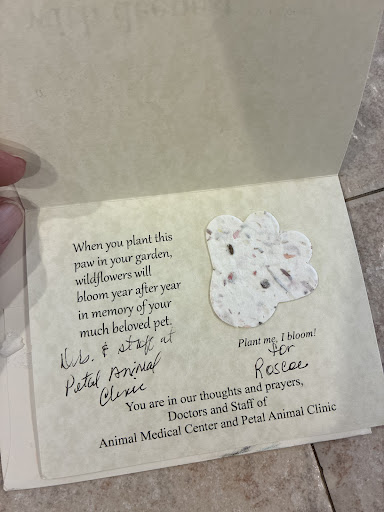 When you plant this
paw in your garden,
wildflowers will
bloom year after year
in memory of your
much beloved pet.
& staff at
Petal Animal
Clinic
Plant me, I bloom!
for
Roscoe
You are in our thoughts and prayers,
Doctors and Staff of
Animal Medical Center and Petal Animal Clinic